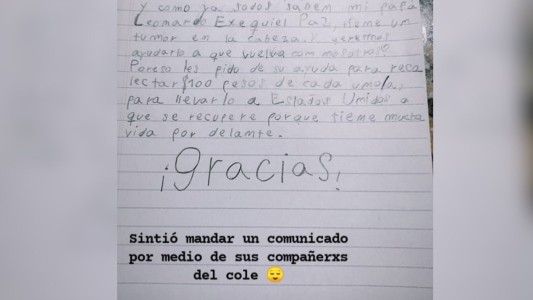 y como ya todos saben mi papá
Leonardo Exequiel Paz, tiene un
tumor en la cabesa y queremos
ayudarlo a que vuelva com nosotros.
Poreso les pido de su ayuda para reca
lectar $100 pesos de cada umo/a,
para llevarlo a Estados Umidos a
que se recupere porque tieme mucha
vida por delamte.
¡Gracias!
Sintió mandar un comunicado
por medio de sus compañerxs
del cole 😌